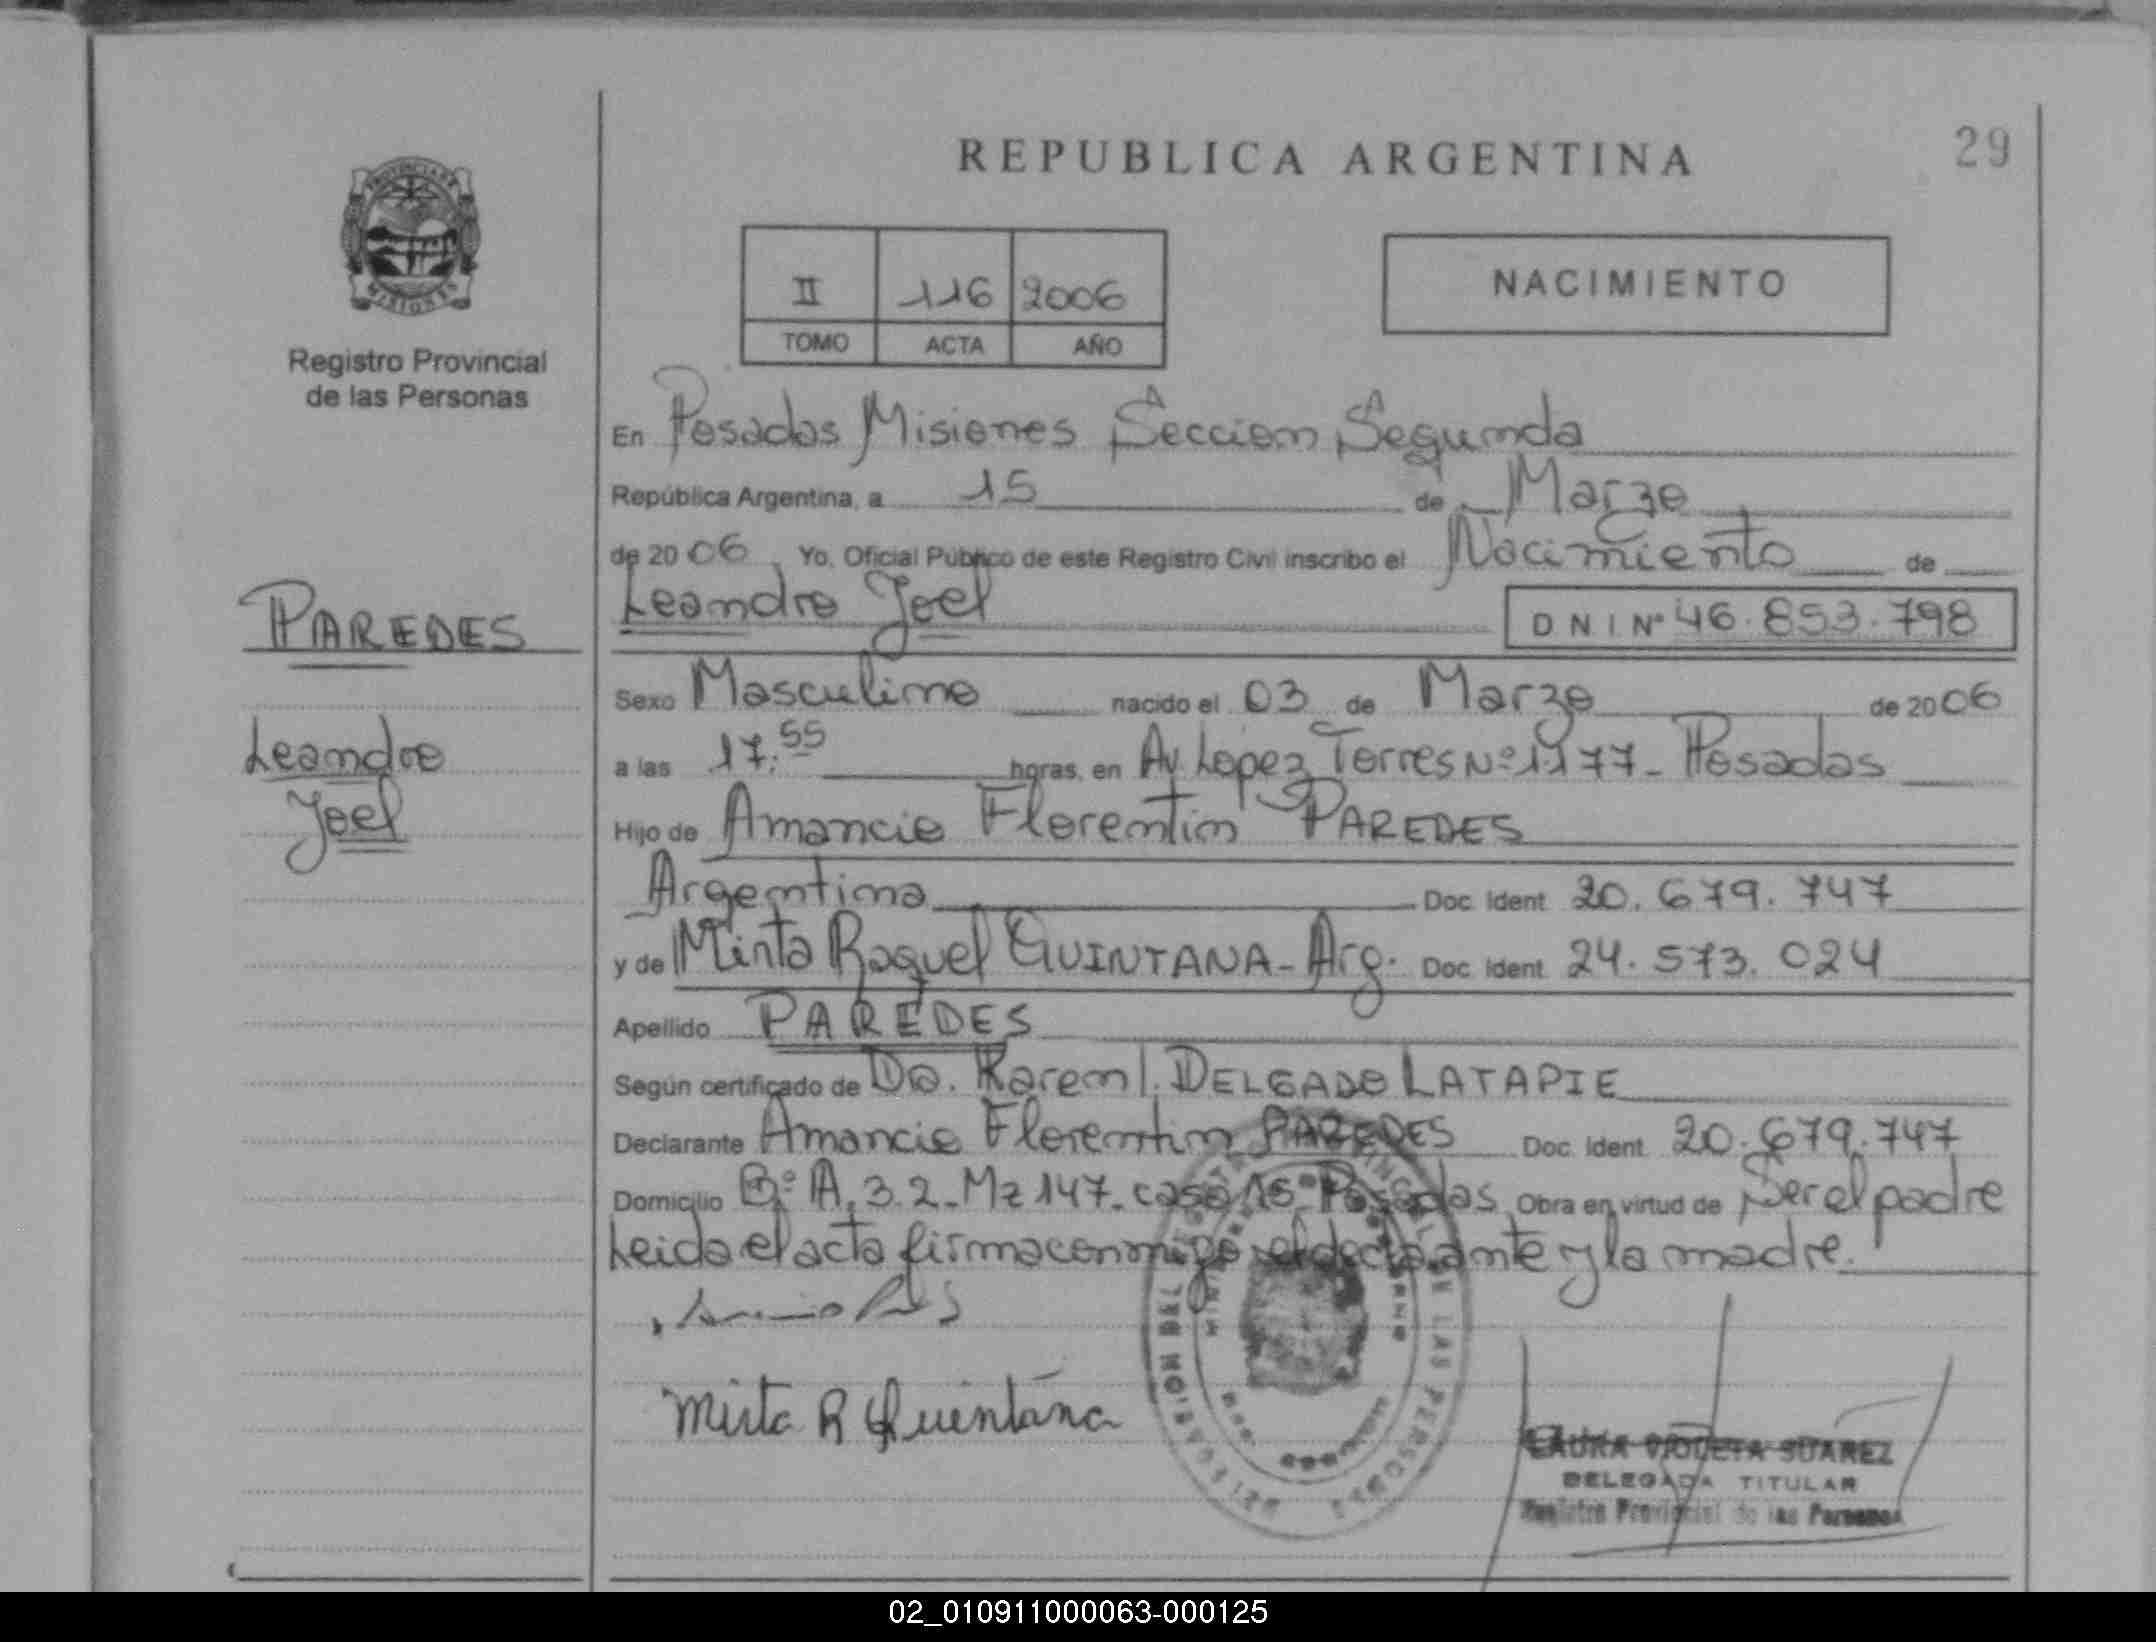 REPUBLICA ARGENTINA
29
PROVINCIA DE
MISIONES
Registro Provincial
de las Personas
II 116 2006
TOMO ACTA AÑO
NACIMIENTO
En Posadas Misiones Seccion Segunda
República Argentina, a 15 de Marzo
de 2006 Yo, Oficial Público de este Registro Civil inscribo el Nacimiento de
Leandro Joel DNI Nº 46.853.798
PAREDES
Leandro
Joel
Sexo Masculino nacido el 03 de Marzo de 2006
a las 17:55 horas, en Av. Lopez Torres Nº 1177- Posadas
Hijo de Amancio Florentin PAREDES
Argentina Doc. Ident. 20.679.747
y de Mirta Raquel QUINTANA- Arg. Doc. Ident. 24.573.024
Apellido PAREDES
Según certificado de Da. Karem I. DELGADO LATAPIE
Declarante Amancio Florentin PAREDES Doc. Ident. 20.679.747
Domicilio Bº A.3.2-Mz 147-casa 16-Posadas Obra en virtud de Ser el padre
Leida el acta firma conmigo el declarante y la madre.
Mirta R Quintana
LAURA VIOLETA SUAREZ
DELEGADA TITULAR
Registro Provincial de las Personas
02_010911000063-000125